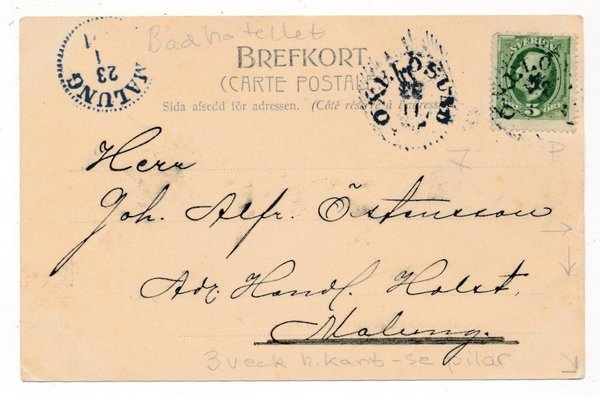 Badhotellet
BREFKORT.
(CARTE POSTALE)
Sida afsedd för adressen. (Côté réservé à l'adresse)
MALUNG
23
1
SVERIGE
5 ÖRE
OXELÖSUND
7
P
Herr
Joh. Alfr. Östensson
Adr. Handl. Holst,
Malung.
3 veck h. kant - se pilar